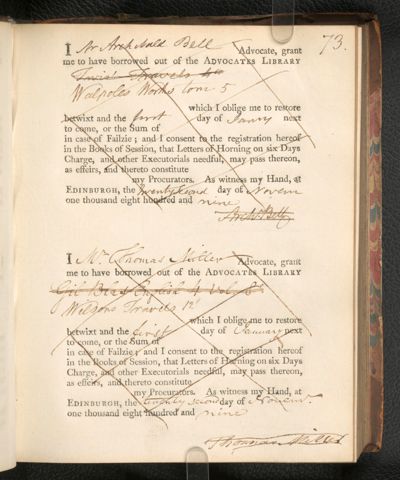 73.
I Mr Archibald Bell Advocate, grant
me to have borrowed out of the ADVOCATES LIBRARY
Travels 4to
Walpoles Works tom 5
which I oblige me to restore
betwixt and the first day of Janry next
to come, or the Sum of
in case of Failzie; and I consent to the registration hereof
in the Books of Session, that Letters of Horning on six Days
Charge, and other Executorials needful, may pass thereon,
as effeirs, and thereto constitute
my Procurators. As witness my Hand, at
EDINBURGH, the twenty second day of Novem
one thousand eight hundred and nine
Archd Bell
I Mr Thomas Miller Advocate, grant
me to have borrowed out of the ADVOCATES LIBRARY
Gil Blas English 4 Vols
Wilsons Travels 12o
which I oblige me to restore
betwixt and the first day of January next
to come, or the Sum of
in case of Failzie; and I consent to the registration hereof
in the Books of Session, that Letters of Horning on six Days
Charge, and other Executorials needful, may pass thereon,
as effeirs, and thereto constitute
my Procurators. As witness my Hand, at
EDINBURGH, the twenty second day of Novemr.
one thousand eight hundred and nine
Thomas Miller